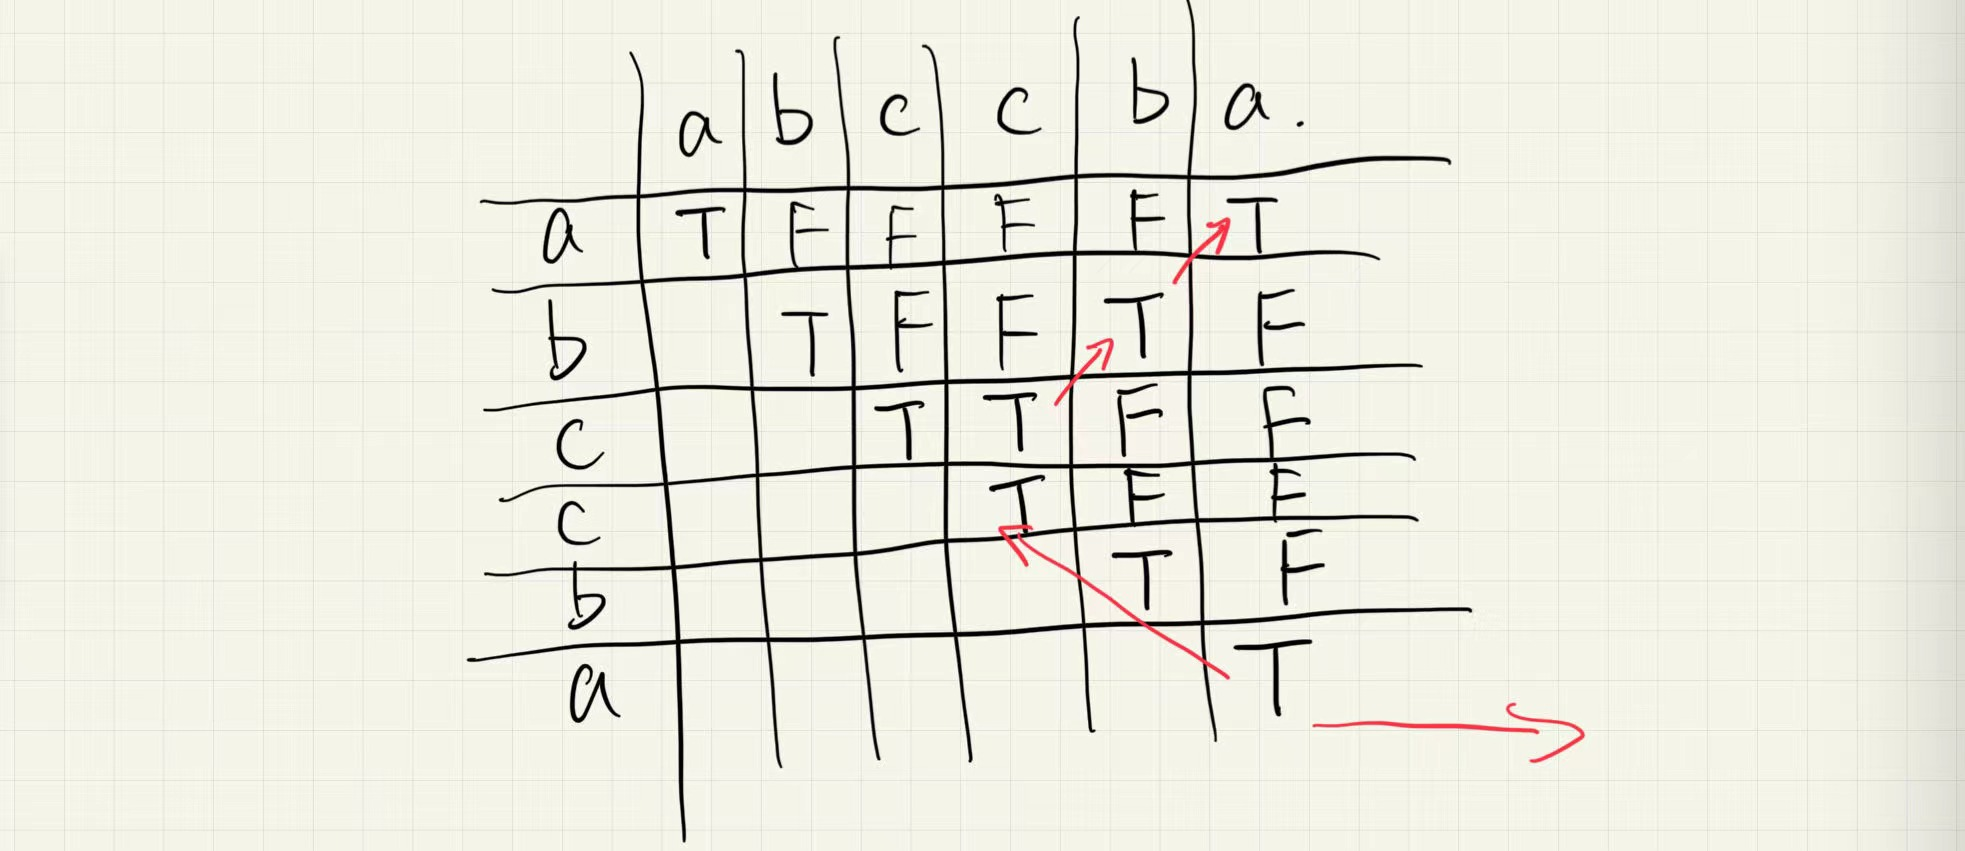 a b c c b a.
a T F F F F T
b T F F T F
c T T F F
c T F F
b T F
a T